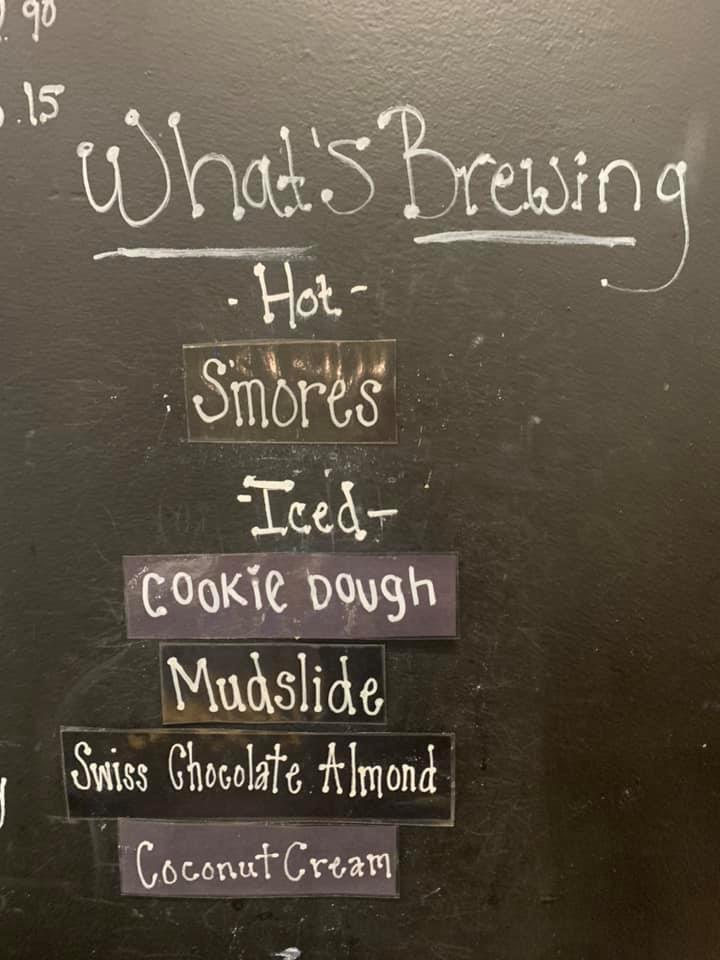 90
.15
What's Brewing
- Hot -
S'mores
- Iced -
COOKiE DOUGH
Mudslide
Swiss Chocolate Almond
Coconut Cream